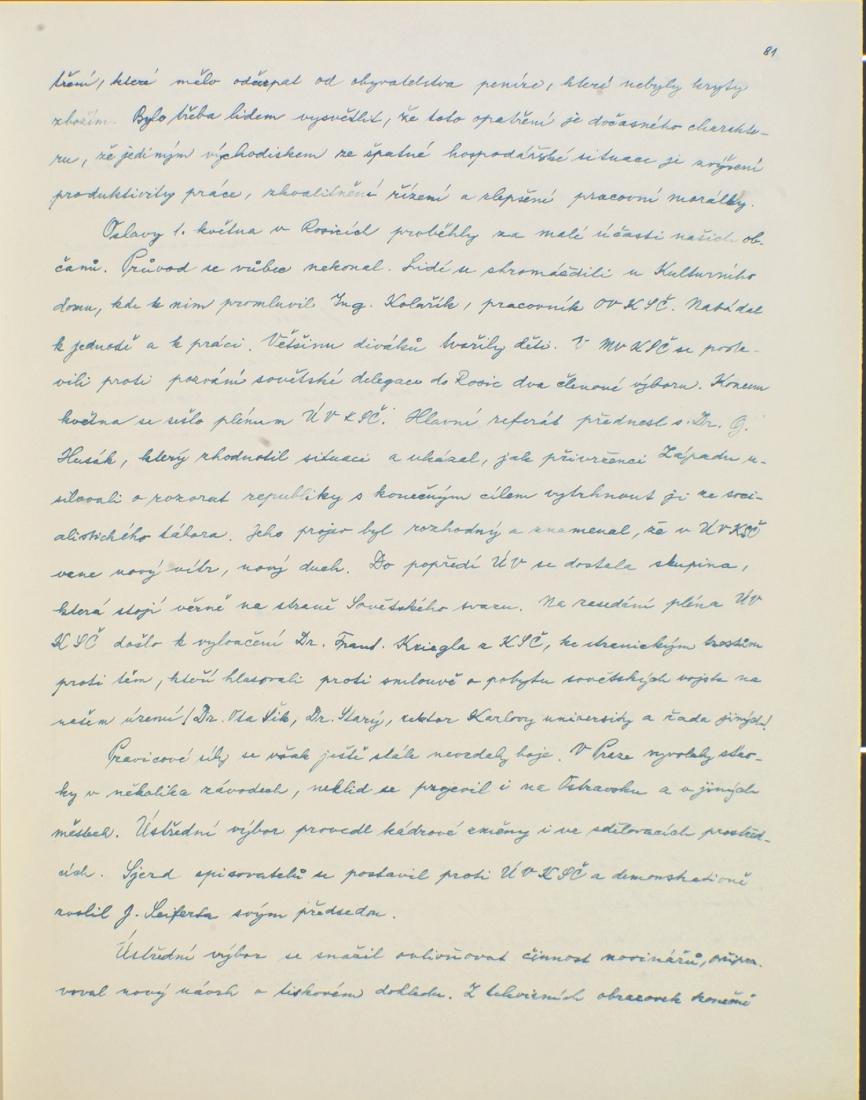 81
tření, které mělo odčerpat od obyvatelstva peníze, které nebyly kryty
zbožím. Bylo třeba lidem vysvětlit, že toto opatření je dočasného charakte-
ru, že jediným východiskem ze špatné hospodářské situace je zvýšení
produktivity práce, zkvalitnění řízení a zlepšení pracovní morálky.
Oslavy 1. května v Rosicích proběhly za malé účasti našich ob-
čanů. Průvod se vůbec nekonal. Lidé se shromáždili u Kulturního
domu, kde k nim promluvil Ing. Kolařík, pracovník OV KSČ. Nabádal
k jednotě a k práci. Většinu diváků tvořily děti. V MV KSČ se posta-
vili proti pozvání sovětské delegace do Rosic dva členové výboru. Koncem
května se sešlo plénum ÚV KSČ. Hlavní referát přednesl s. Dr. G.
Husák, který zhodnotil situaci a ukázal, jak přívrženci Západu u-
silovali o rozvrat republiky s konečným cílem vytrhnout ji ze soci-
alistického tábora. Jeho projev byl rozhodný a znamenal, že v ÚV KSČ
vane nový vítr, nový duch. Do popředí ÚV se dostala skupina,
která stojí věrně na straně Sovětského svazu. Na zasedání pléna ÚV
KSČ došlo k vyloučení Dr. Frant. Kriegla z KSČ, ke stranickým trestům
proti těm, kteří hlasovali proti smlouvě o pobytu sovětských vojsk na
našem území (Dr. Ota Šik, Dr. Starý, rektor Karlovy university a řada jiných)
Pravicové síly se však ještě stále nevzdaly boje. V Praze vyvolaly stáv-
ky v několika závodech, neklid se projevil i na Ostravsku a v jiných
městech. Ústřední výbor provedl kádrové změny i ve sdělovacích prostřed-
cích. Sjezd spisovatelů se postavil proti ÚV KSČ a demonstrativně
zvolil J. Seiferta svým předsedou.
Ústřední výbor se snažil ovlivňovat činnost novinářů, připra-
voval nový návrh o tiskovém dohledu. Z televizních obrazovek konečně